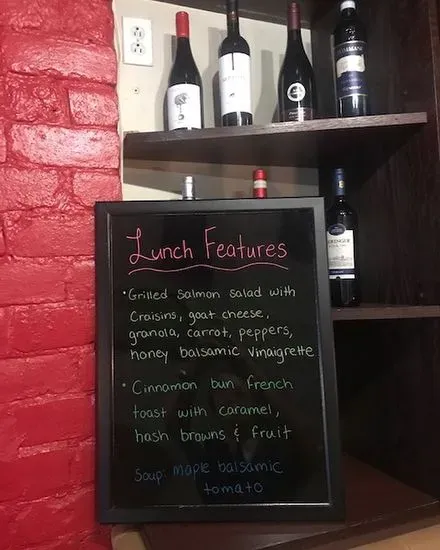 Lunch Features
• Grilled Salmon salad with
Craisins, goat cheese,
granola, carrot, peppers,
honey balsamic vinaigrette
• Cinnamon bun french
toast with caramel,
hash browns & fruit
Soup: maple balsamic
tomato